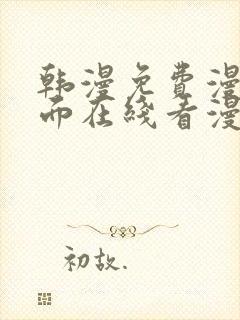 韩漫免费漫
而在线看漫
初故.